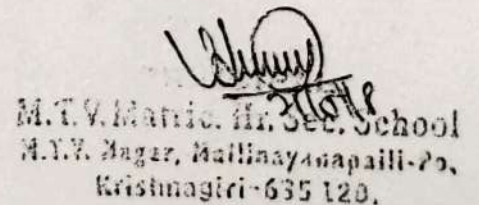 M.T.V. Matric. Hr. Sec. School
M.T.V. Nagar, Mallinayanapalli-Po,
Krishnagiri-635 120.